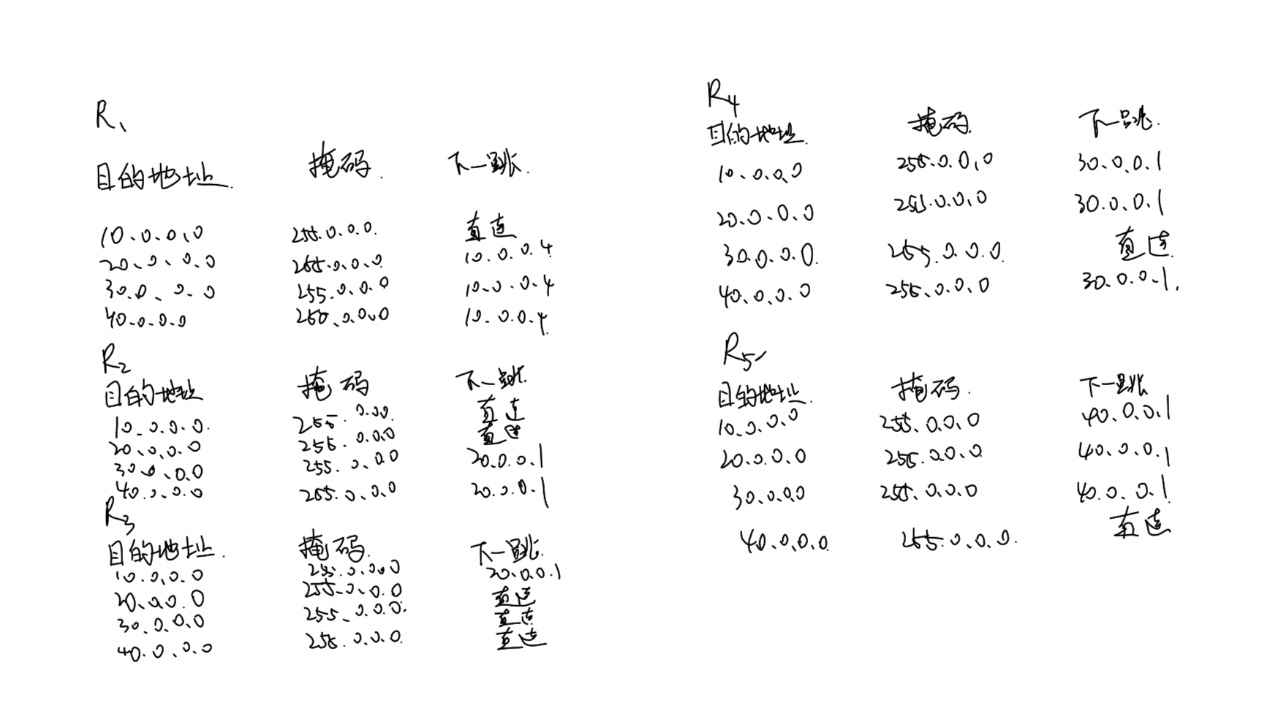 R1
目的地址 掩码 下一跳
10.0.0.0 255.0.0.0 直连
20.0.0.0 255.0.0.0 10.0.0.4
30.0.0.0 255.0.0.0 10.0.0.4
40.0.0.0 255.0.0.0 10.0.0.4
R2
目的地址 掩码 下一跳
10.0.0.0 255.0.0.0 直连
20.0.0.0 255.0.0.0 直连
30.0.0.0 255.0.0.0 20.0.0.1
40.0.0.0 255.0.0.0 20.0.0.1
R3
目的地址 掩码 下一跳
10.0.0.0 255.0.0.0 20.0.0.1
20.0.0.0 255.0.0.0 直连
30.0.0.0 255.0.0.0 直连
40.0.0.0 255.0.0.0 直连
R4
目的地址 掩码 下一跳
10.0.0.0 255.0.0.0 30.0.0.1
20.0.0.0 255.0.0.0 30.0.0.1
30.0.0.0 255.0.0.0 直连
40.0.0.0 255.0.0.0 30.0.0.1
R5
目的地址 掩码 下一跳
10.0.0.0 255.0.0.0 40.0.0.1
20.0.0.0 255.0.0.0 40.0.0.1
30.0.0.0 255.0.0.0 40.0.0.1
40.0.0.0 255.0.0.0 直连